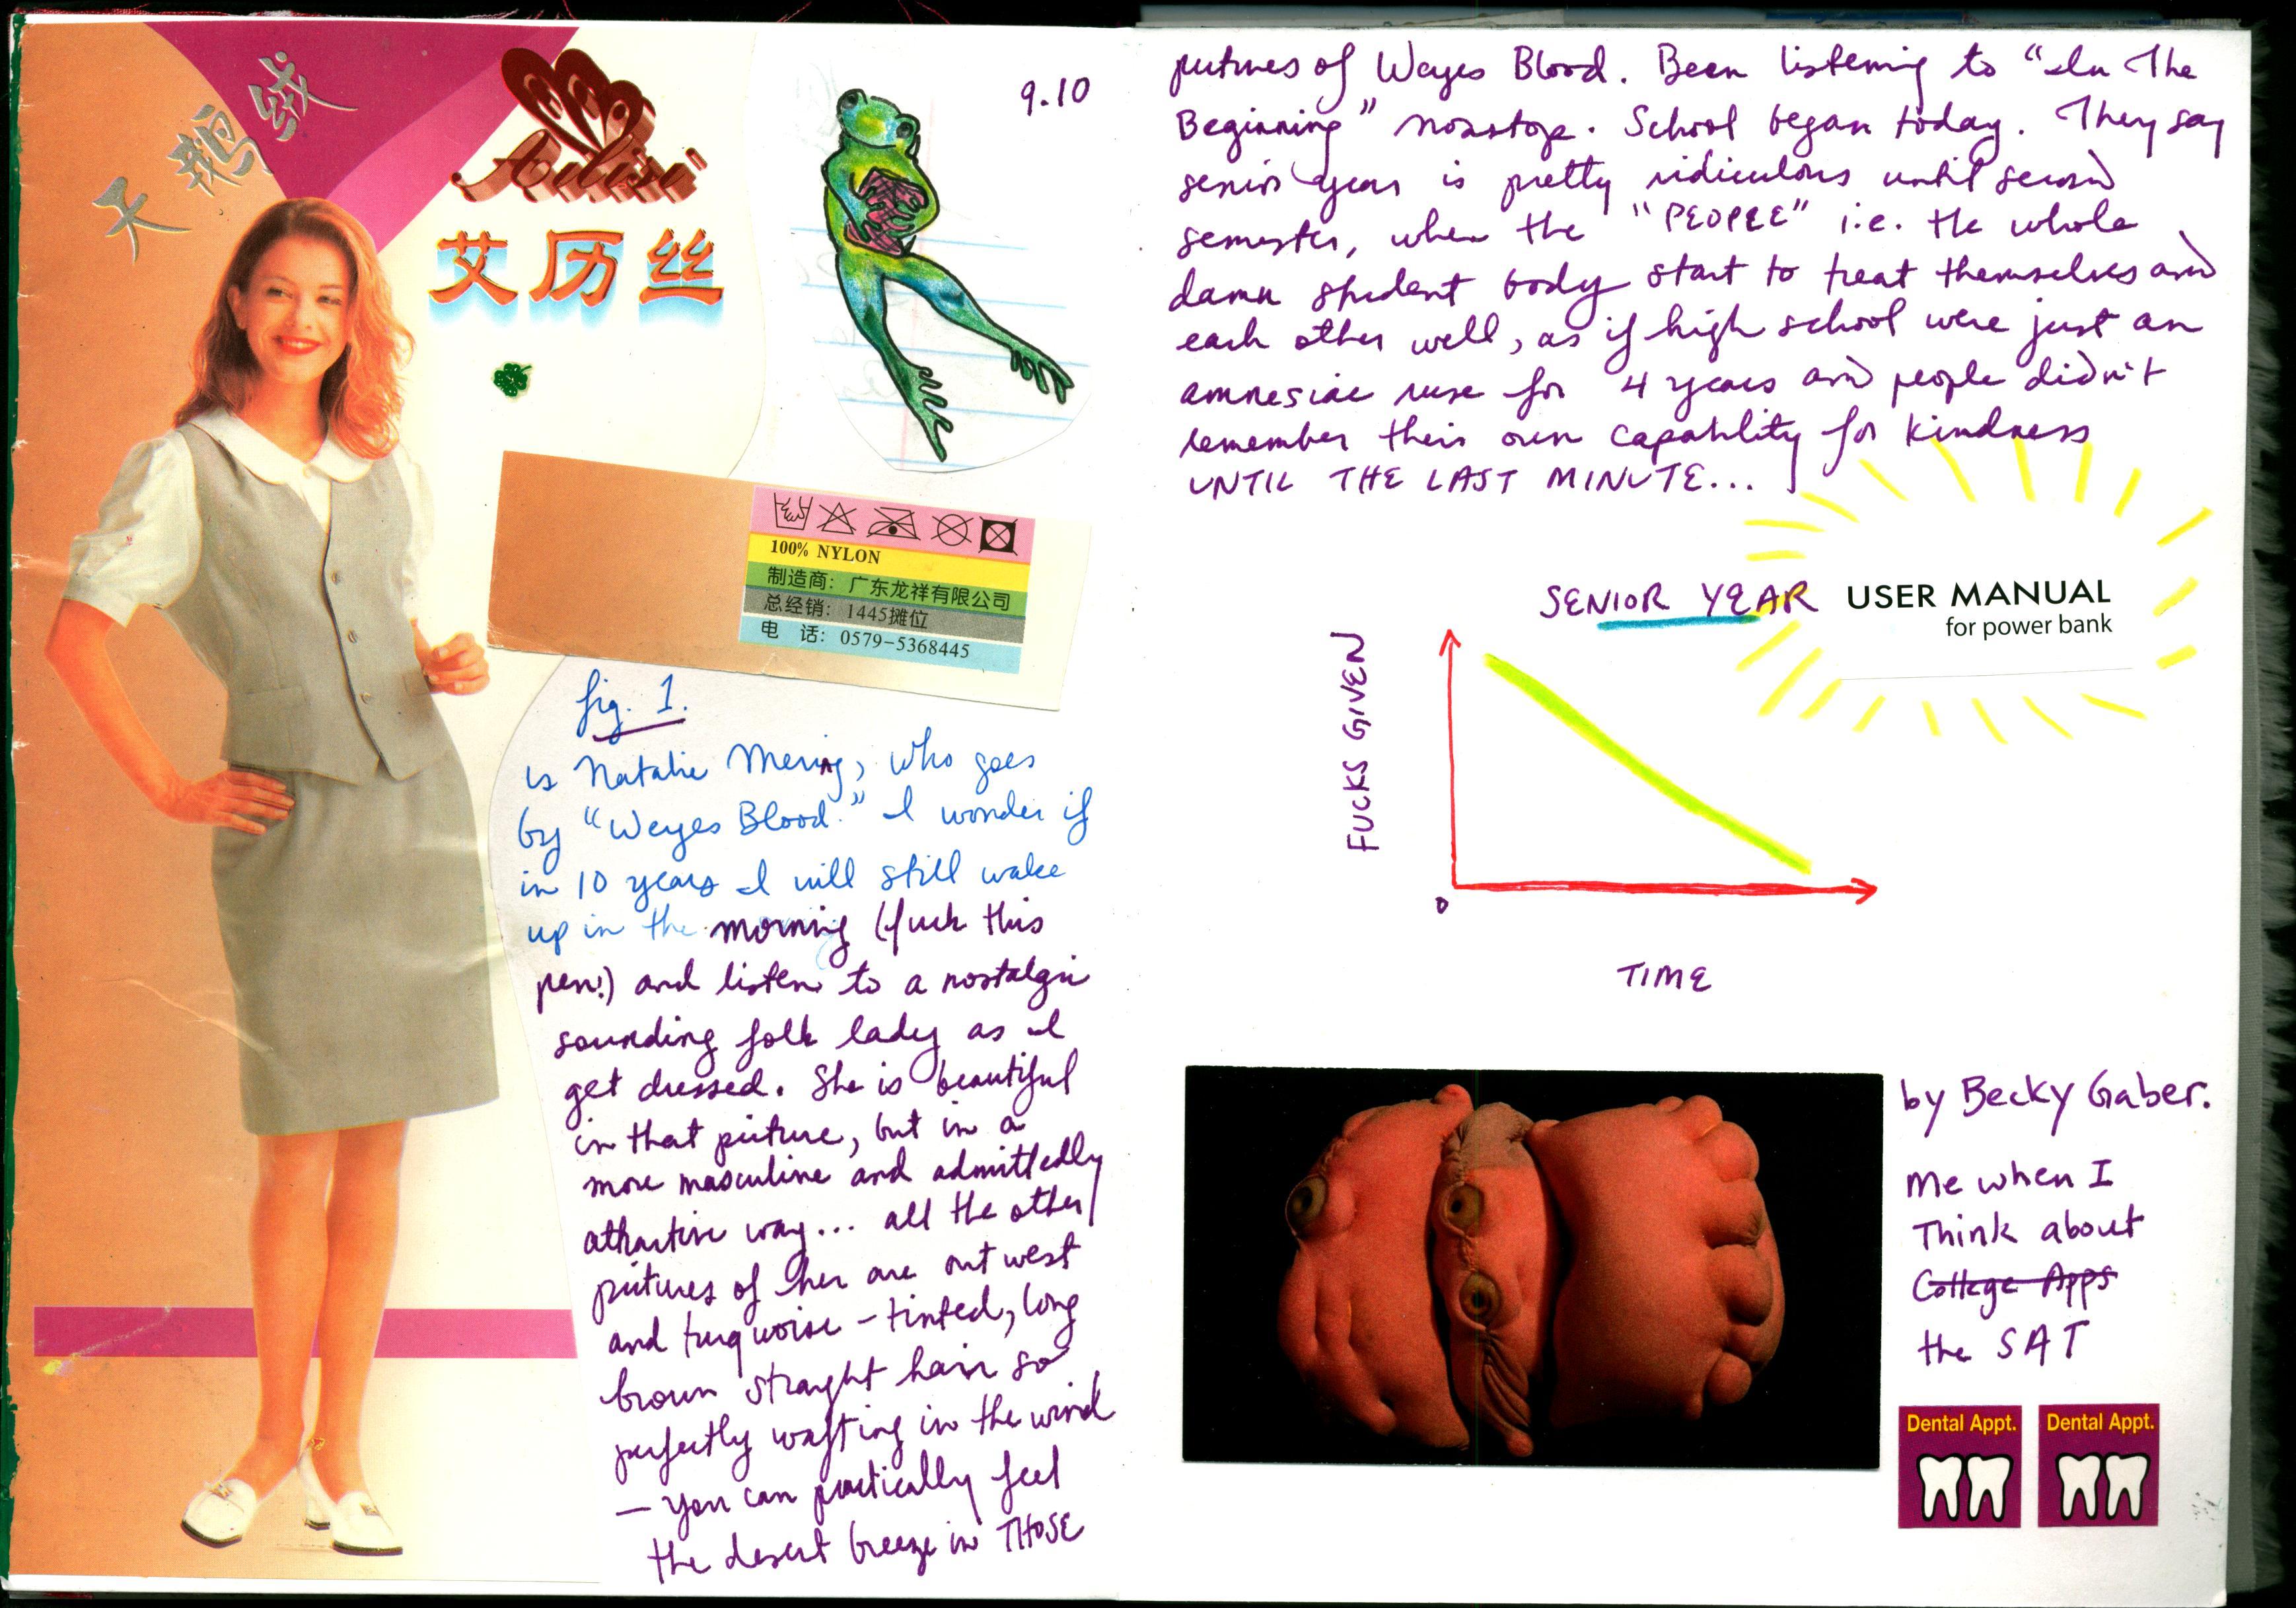 天鹅绒
Ailisi
艾历丝
9.10
100% NYLON
制造商：广东龙祥有限公司
总经销：1445摊位
电 话：0579-5368445
fig. 1.
is Natalie Mering, who goes
by "Weyes Blood." I wonder if
in 10 years I will still wake
up in the morning (fuck this
pen!) and listen to a nostalgic
sounding folk lady as I
get dressed. She is beautiful
in that picture, but in a
more masculine and admittedly
attractive way... all the other
pictures of her are out west
and turquoise-tinted, long
brown straight hair so
perfectly wafting in the wind
— you can practically feel
the desert breeze in THOSE
pictures of Weyes Blood. Been listening to "In The
Beginning" nonstop. School began today. They say
senior year is pretty ridiculous until second
semester, when the "PEOPLE" i.e. the whole
damn student body start to treat themselves and
each other well, as if high school were just an
amnesiac ruse for 4 years and people didn't
remember their own capability for kindness
UNTIL THE LAST MINUTE...
SENIOR YEAR
USER MANUAL
for power bank
FUCKS GIVEN
0
TIME
by Becky Gaber.
Me when I
Think about
College Apps
the SAT
Dental Appt.
Dental Appt.